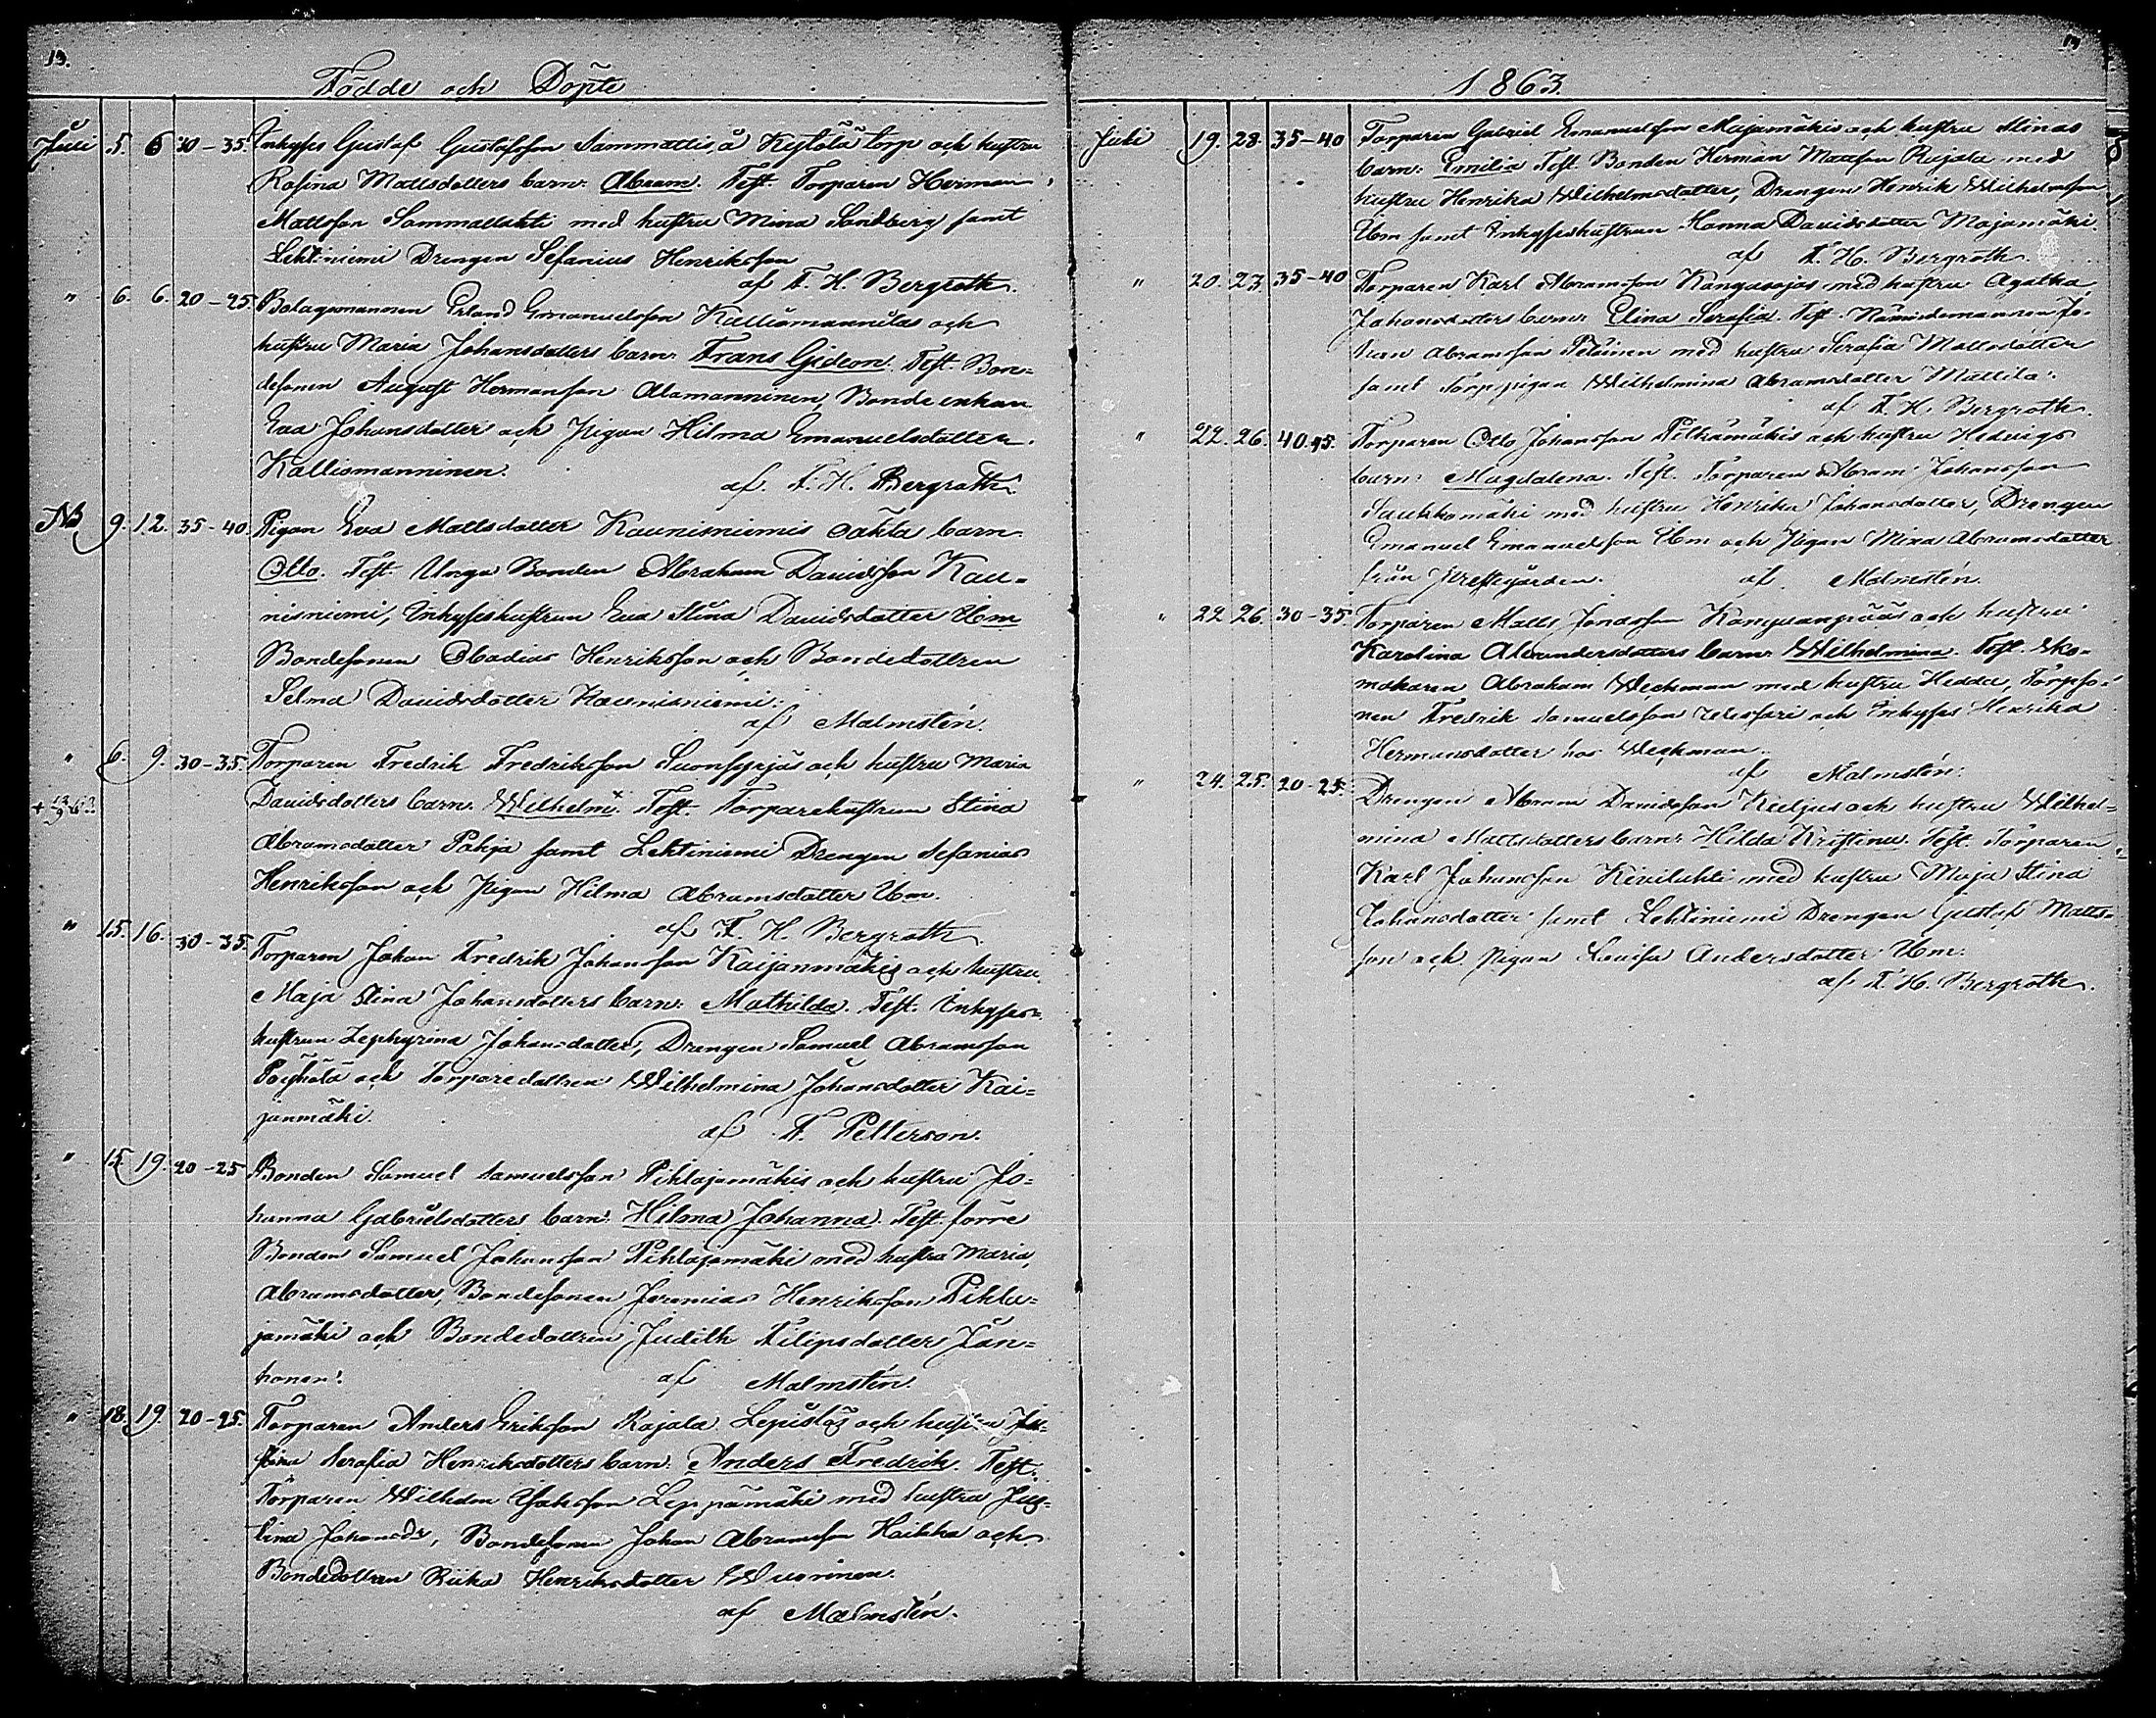 13.
Födde och Döpte
Juli 5. 6 30-35. Inhyses Gustaf Gustafsson Sammattis å Kejtölä torp och hustru
Rosina Mattsdotters barn: Abram. Test. Torparen Herman
Mattsson Sammallahti med hustru Mina Sandberg samt
Lehtiniemi Drengen Sefanias Henriksson
af F. H. Bergroth.
" 6. 6. 20-25. Bolagsmannen Erland Emanuelsson Kalliomannilas och
hustru Maria Johansdotters barn: Frans Gideon. Test. Bon=
desonen August Hermansson Alamanninen, Bonde enkan
Eva Johansdotter och Pigan Hilma Emanuelsdotter
Kalliomanninen.
af. F. H. Bergroth.
NB 9. 12. 35-40. Pigan Eva Mattsdotter Kaunisniemis oäkta barn
Otto. Test. Unga Bonden Abraham Davidsson Kau=
nisniemi, Inhyseshustrun Eva Stina Davidsdotter Ibm
Bondesonen Obadias Henriksson och Bondedottren
Selma Davidsdotter Kaunisniemi.
af Malmstén.
" 6. 9. 30-35. Torparen Fredrik Fredriksson Suonsyrjäs och hustru Maria
Davidsdotters barn: Wilhelm+. Test. Torparehustrun Stina
Abramsdotter Pohja samt Lehtiniemi Drengen Sefanias
Henriksson och Pigan Hilma Abramsdotter Ibm.
af F. H. Bergroth.
" 15. 16. 30-35. Torparen Johan Fredrik Johansson Kaijanmäkis och hustru
Maja Stina Johansdotters barn: Mathilda. Test. Inhyses=
hustrun Zephyrina Johansdotter, Drengen Samuel Abramsson
och Torparedottren Wilhelmina Johansdotter Kai=
janmäki.
af F. Petterson.
" 15. 19. 20-25 Bonden Samuel Samuelsson Pihlajamäkis och hustru Jo=
hanna Gabrielsdotters barn: Hilma Johanna. Test. förre
Bonden Samuel Johansson Pihlajamäki med hustru Maria
Abramsdotter, Bondesonen Jeremias Henriksson Pihla=
jamäki och Bondedottren Judith Filipsdotter Jän=
honen.
af Malmstén.
" 18. 19. 20-25. Torparen Anders Eriksson Rajala Lepistös och hustru Ju=
stina Serafia Henriksdotters barn: Anders Fredrik. Test.
Torparen Wilhelm Isaksson Leppämäki med hustru Jus=
tina Johansdr, Bondesonen Johan Abramsson Haikka och
Bondedottren Riika Henriksdotter Wuorinen.
af Malmstén.
1863.
Juli 19. 28. 35-40 Torparen Gabriel Emanuelsson Majamäkis och hustru Stinas
barn: Emilia Test. Bonden Herman Mattsson Rajala med
hustru Henrika Wilhelmsdotter, Drengen Henrik Wilhelmsson
Ibm samt Inhyseshustrun Hanna Davidsdotter Majamäki.
af F. H. Bergroth.
" 20. 23. 35-40 Torparen Karl Abramsson Kangasojas med hustru Agatha
Johansdotters barn: Elina Serafia. Test. Nämndemannen Jo=
han Abramsson med hustru Serafia Mattsdotter
samt Torppigan Wilhelmina Abramsdotter Mattila.
af F. H. Bergroth.
" 22. 26. 40.45. Torparen Otto Johansson Pitkämäkis och hustru Hedvigs
barn: Magdalena. Test. Torparen Abram Johansson
Saukkomäki med hustru Henrika Johansdotter, Drengen
Emanuel Emanuelsson Ibm och Pigan Mina Abramsdotter
från Prestgården. af Malmstén.
" 22. 26. 30-35. Torparen Matts Jonasson Kangasanpääs och hustru
Karolina Alexandersdotters barn: Wilhelmina. Test. Sko=
makaren Abraham Weckman med hustru Hedda, Torpso=
nen Fredrik Samuelsson och Inhyses Henrika
Hermansdotter hos Weckman.
af Malmstén.
" 24. 25. 20-25. Drengen Abram Davidsson Keiljus och hustru Wilhel=
mina Mattsdotters barn: Hilda Kristina. Test. Torparen
Karl Johansson Kivilahti med hustru Maja Stina
Johansdotter samt Lehtiniemi Drengen Gustaf Matts=
son och Pigan Lovisa Andersdotter Ibm.
af F. H. Bergroth.